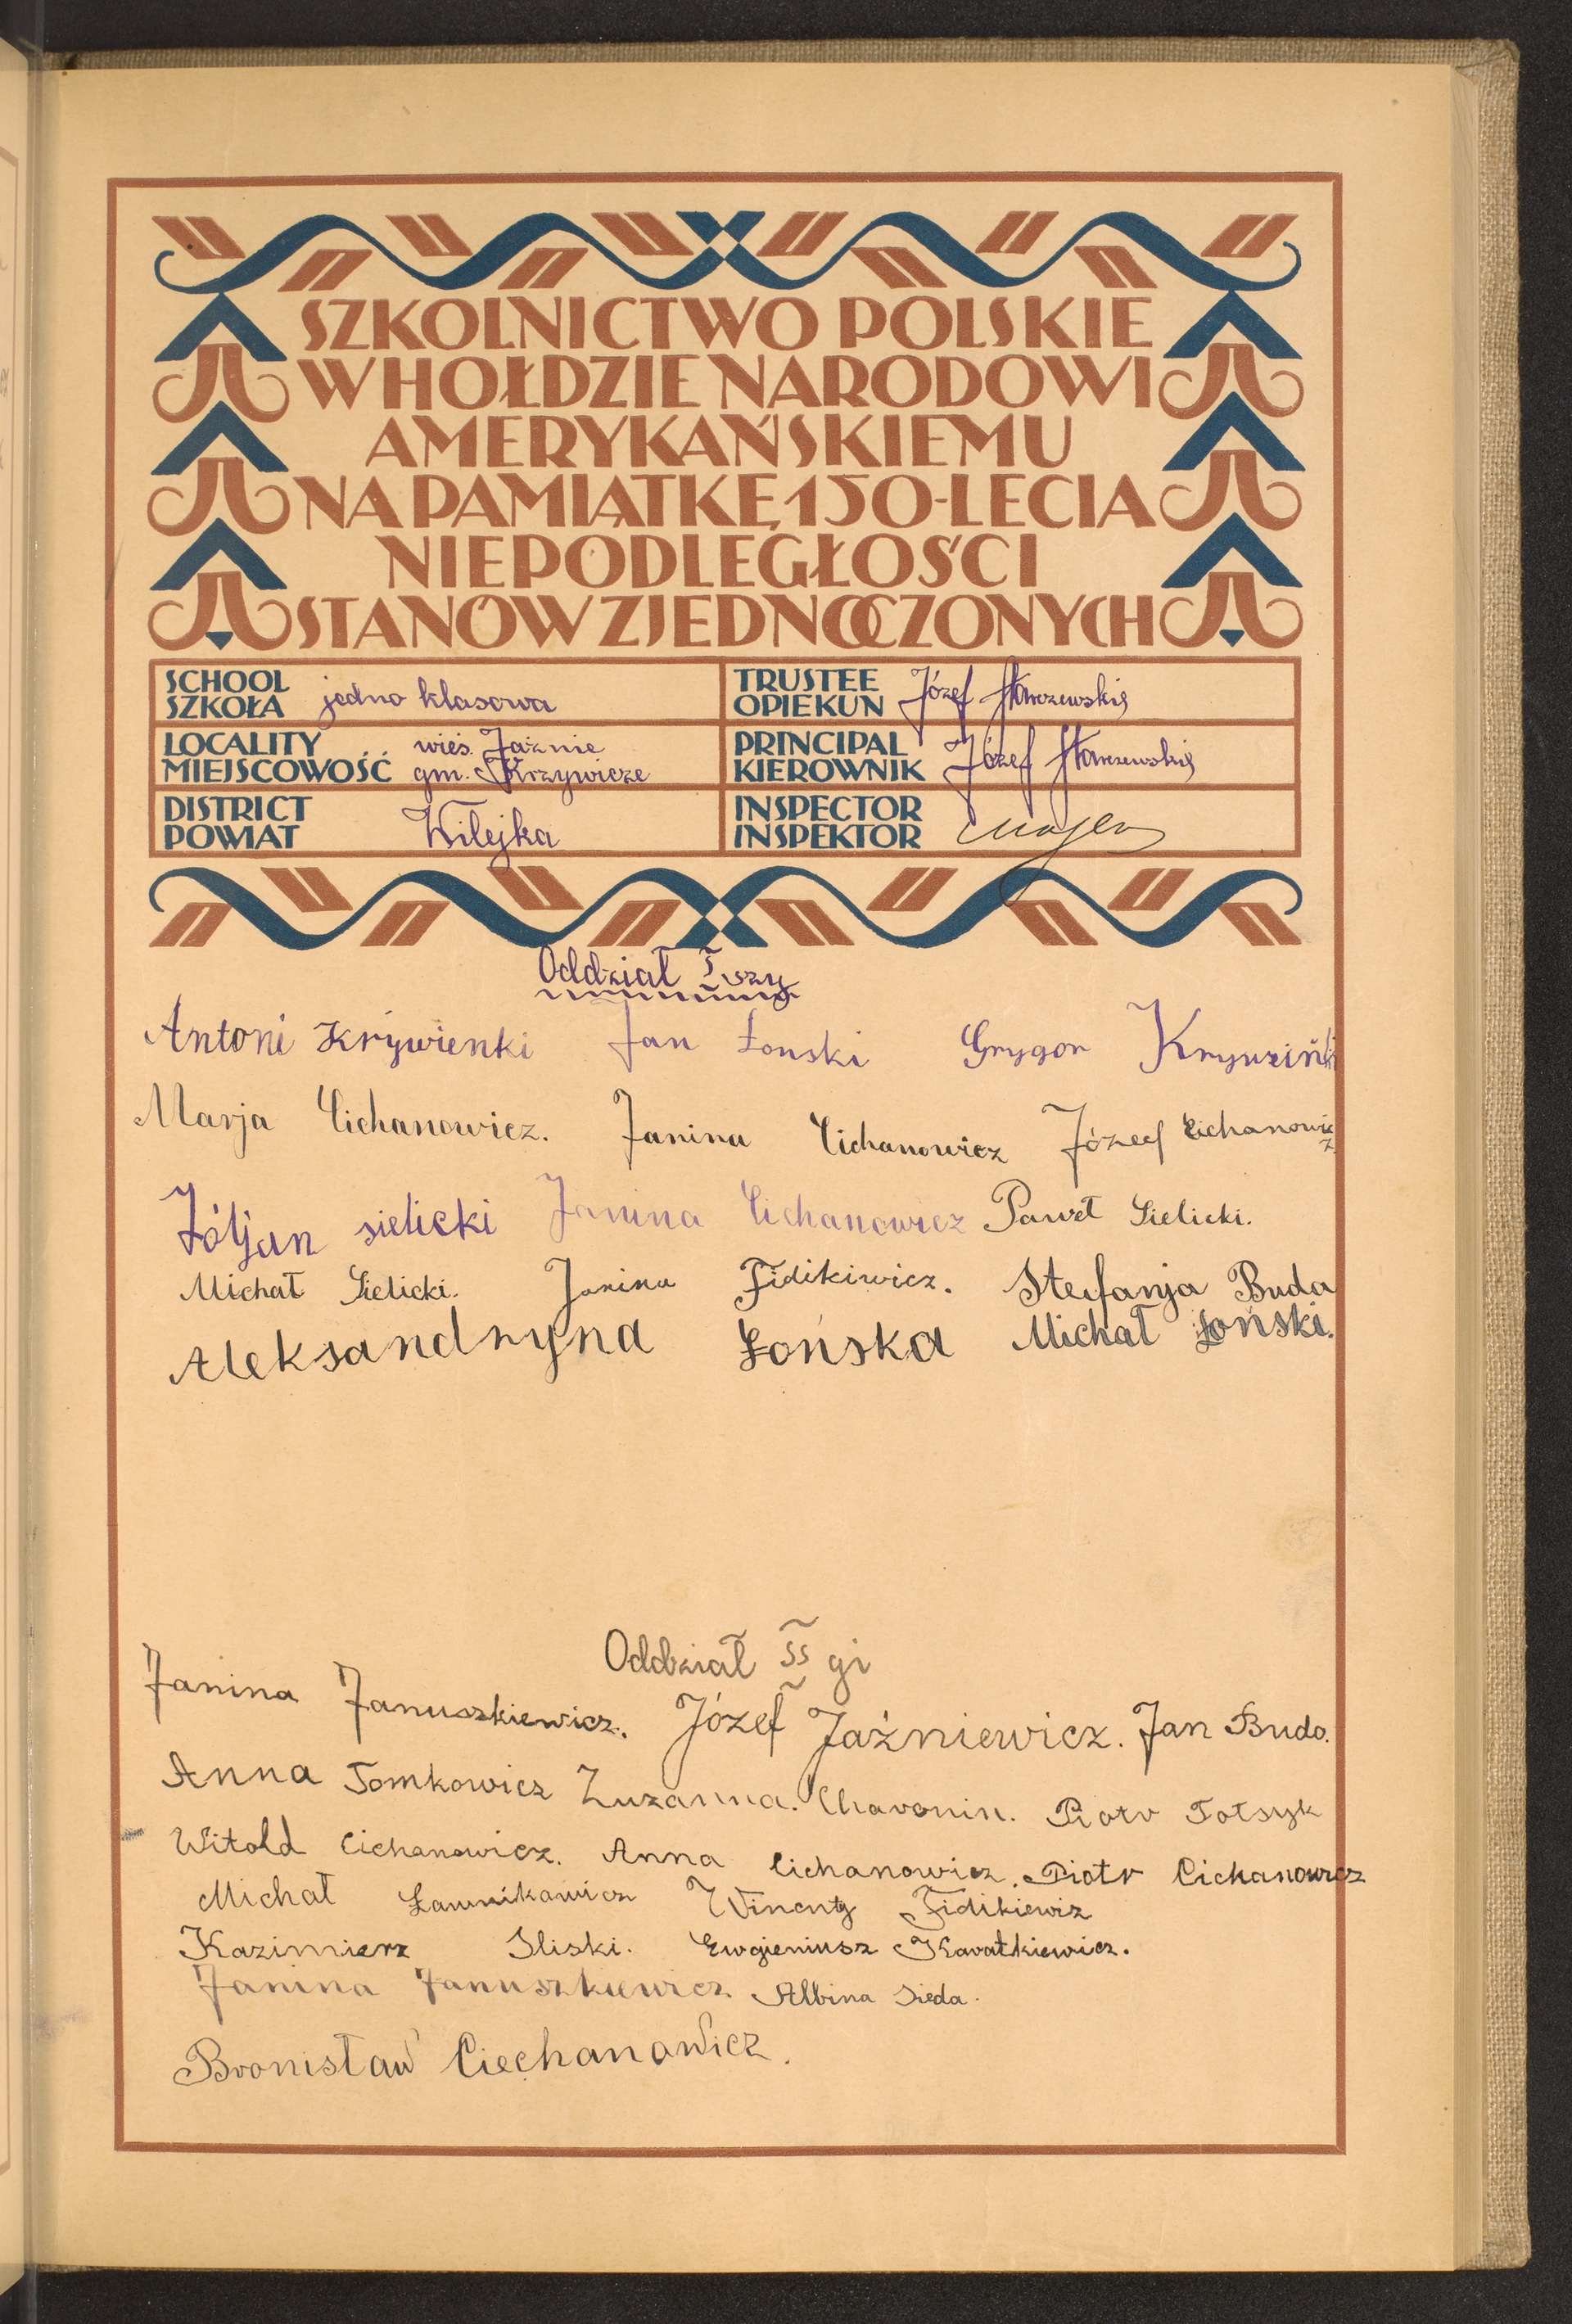 SZKOLNICTWO POLSKIE
W HOŁDZIE NARODOWI
AMERYKAŃSKIEMU
NA PAMIĄTKĘ 150-LECIA
NIEPODLEGŁOŚCI
STANÓW ZJEDNOCZONYCH
SCHOOL
SZKOŁA jedno klasowa
TRUSTEE
OPIEKUN Józef
LOCALITY wieś Jaźnie
MIEJSCOWOŚĆ gm. Krzywicze
PRINCIPAL
KIEROWNIK Józef
DISTRICT
POWIAT Wilejka
INSPECTOR
INSPEKTOR
Oddział I szy
Antoni Krywienki Jan Łonski Grygor
Marja Cichanowicz. Janina Cichanowicz Józef Cichanowicz
sielicki Janina Cichanowicz Paweł Sielicki.
Michał Sielicki. Janina Fidikiwicz. Stefanja Buda
Aleksandryna Łońska Michał Łoński.
Oddział II gi
Janina Januszkiewicz. Józef Jaźniewicz. Jan Buda.
Anna Tomkowicz Zuzanna. Charonin. Piotr Totsyk
Witold Cichanowicz. Anna Cichanowicz. Piotr Cichanowicz
Michał Ławnikawicz Wincnty Fidikiewiz
Kazimierz Iliski. Ewgieniusz Kawatkiewicz.
Janina Januszkiewicz Albina Sieda.
Bronisław Ciechanowicz.